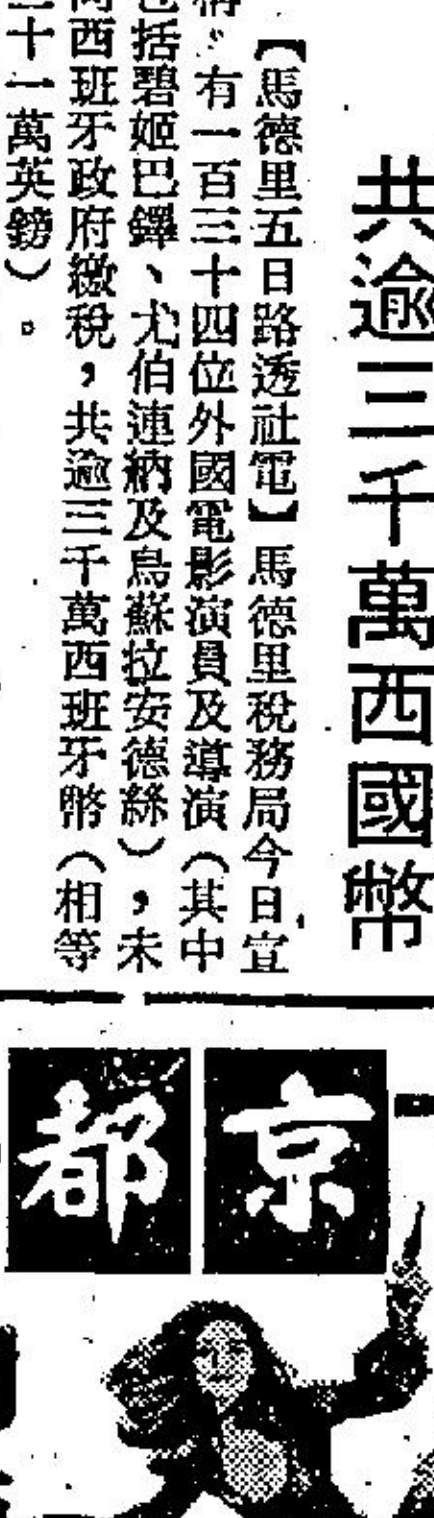 共逾三千萬西國幣
【馬德里五日路透社電】馬德里稅務局今日宣
稱：有一百三十四位外國電影演員及導演（其中
包括碧姬巴鐸、尤伯連納及烏蘇拉安德絲），未
向西班牙政府繳稅，共逾三千萬西班牙幣（相等
十一萬英鎊）。
京都